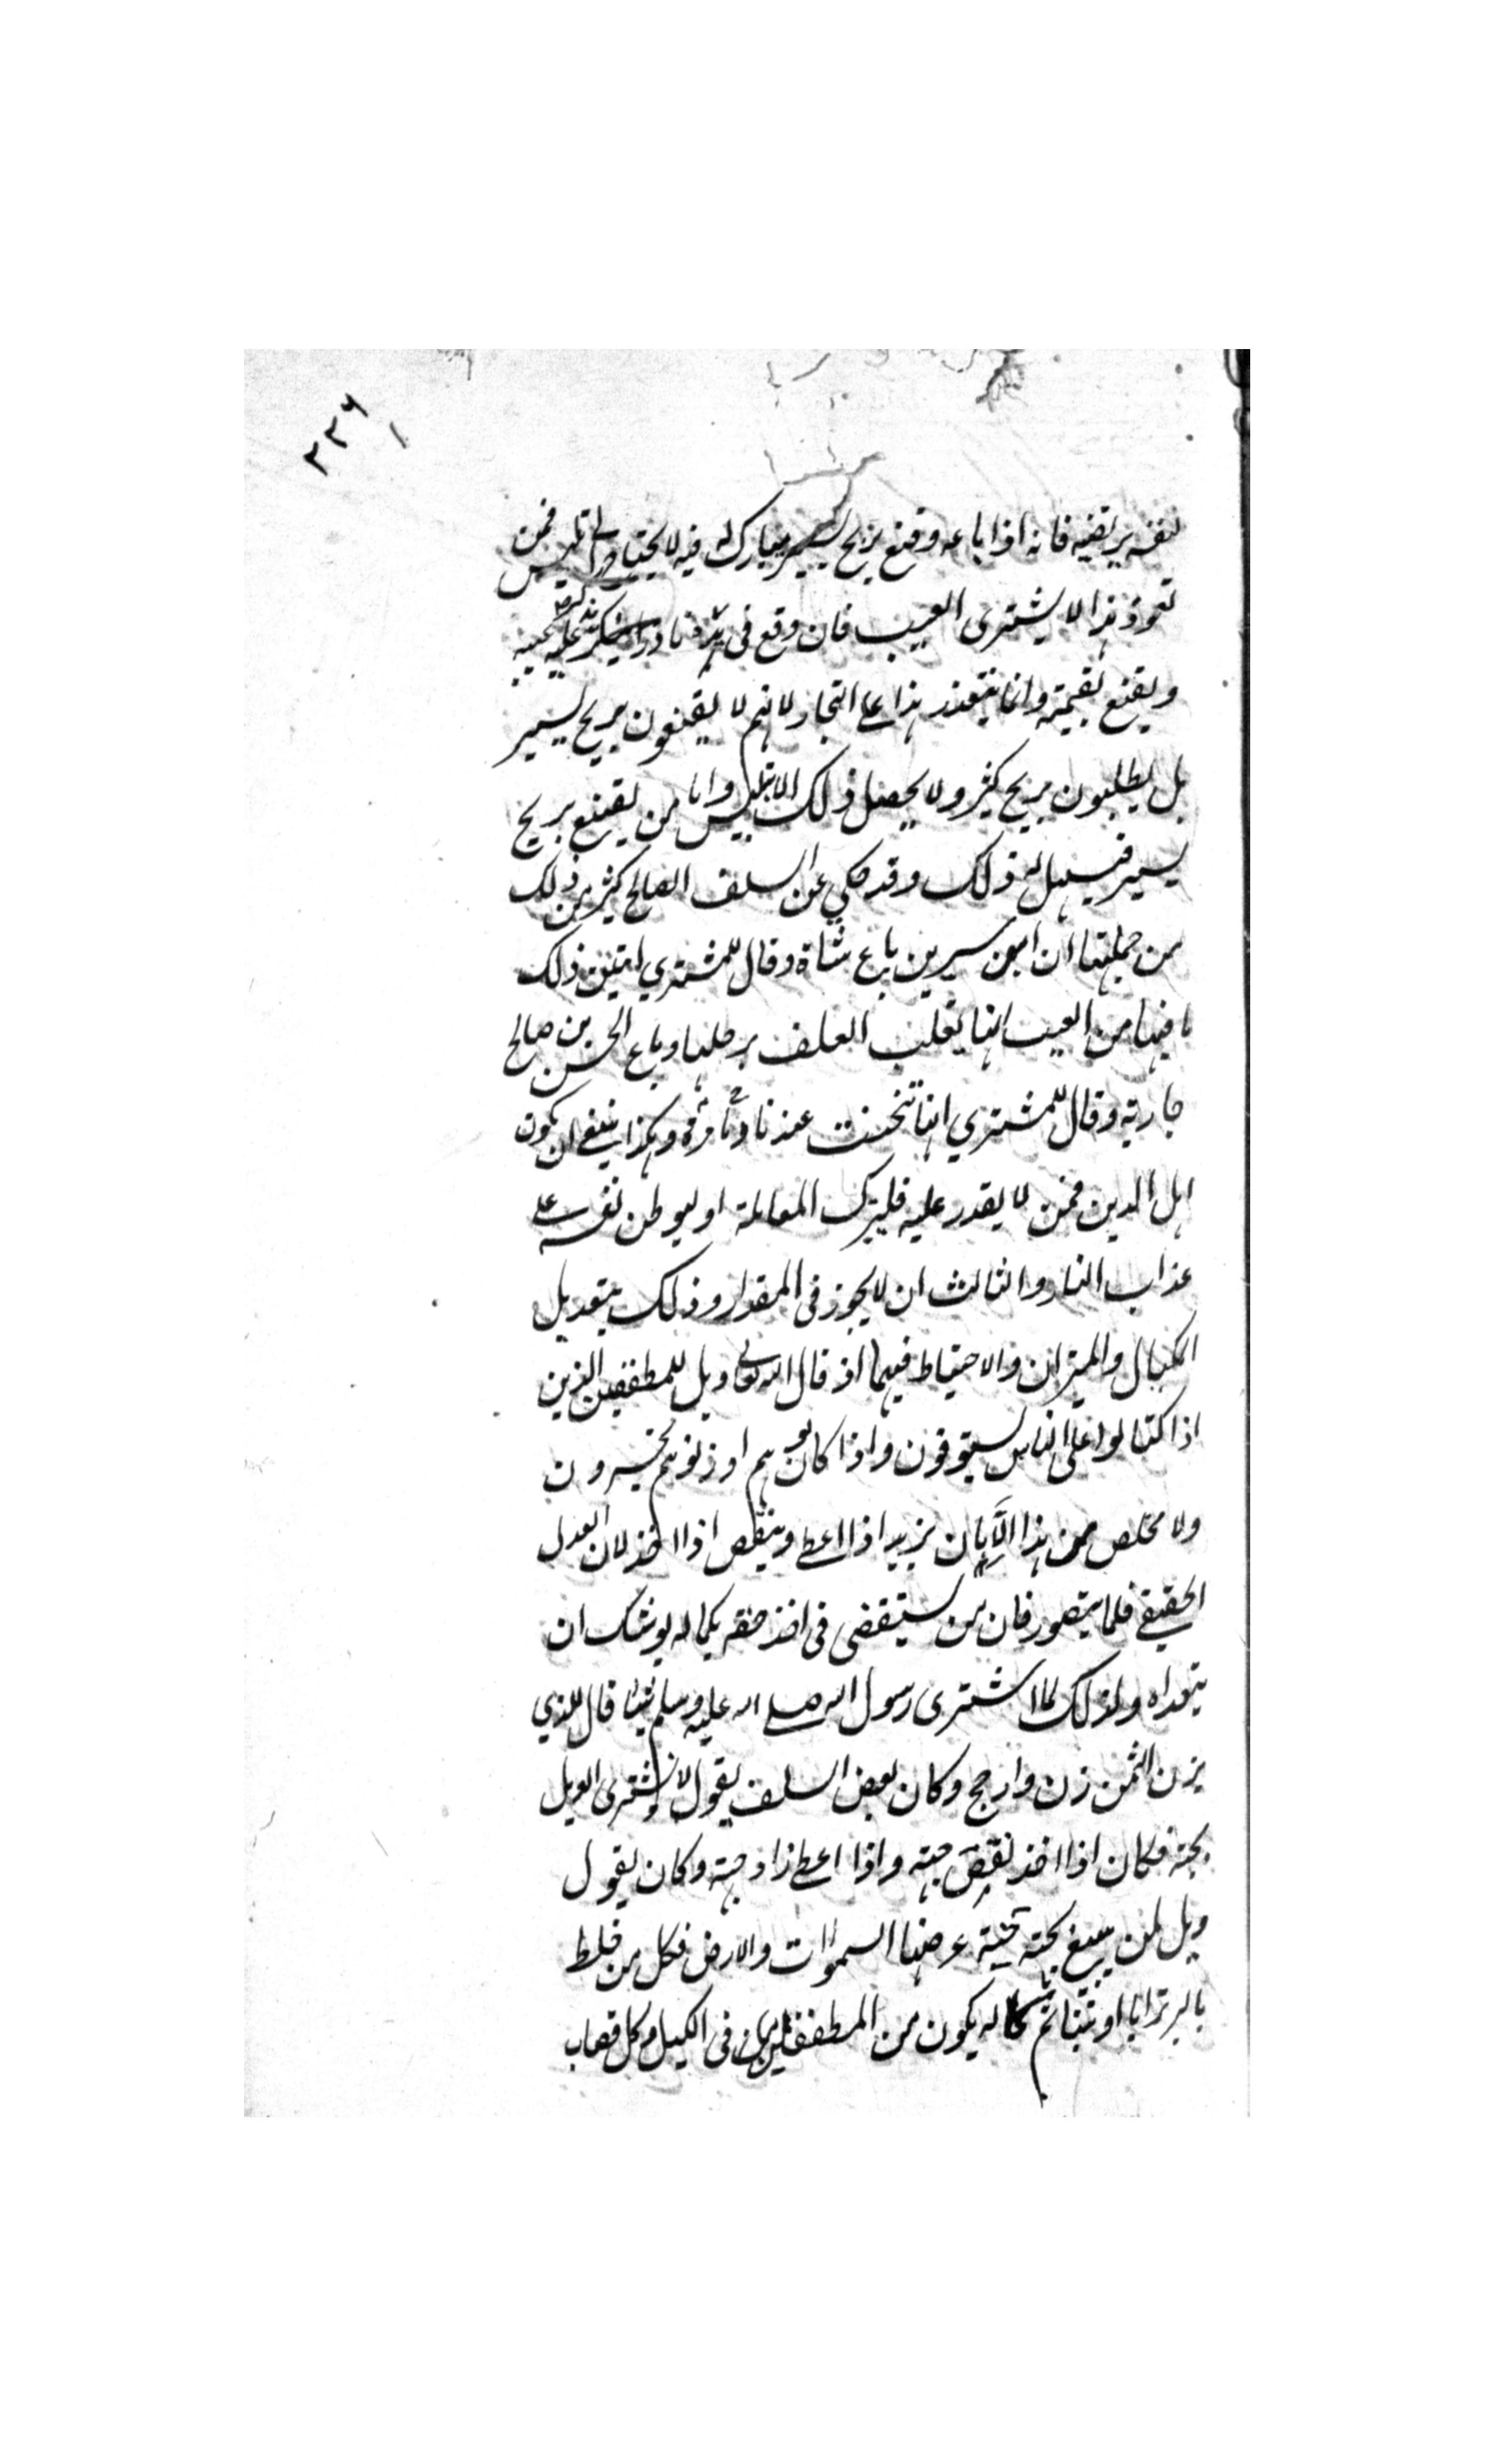 ٢٣٦
لنفسه يرتضيه فانه اذا باعه وقنع بربح يسير يبارك له فيه لا يحتاج الى تلبيس فمن
تعود هذا لا يشترى المعيب فان وقع فى يده نادرا فليذكر عيبه
ويقنع بقيمته وانما يتعذر هذا على التجار لانهم لا يقنعون بربح يسير
بل يطلبون بربح كثير ولا يحصل ذلك الا بتلبيس واما من يقنع بربح
يسير فيسهل له ذلك وقد حكي عن السلف الصالح كثير من ذلك
من جملتها ان ابن سيرين باع شاة وقال للمشتري ذلك
ما فيها من العيب انها تقلب العلف برجلها وباع الحسن بن صالح
جارية وقال للمشتري انها تنخمت عندنا دما مرة وهكذا ينبغى ان يكون
اهل الدين فمن لا يقدر عليه فليترك المعاملة او ليوطن نفسه على
عذاب النار والثالث ان لا يجوز فى المقدار وذلك بتعديل
المكيال والميزان والاحتياط فيهما اذ قال الله تعالى ويل للمطففين الذين
اذا كتالوا على الناس يستوفون واذا كالوهم او زنوهم يخسرون
ولا مخلص من هذا الا بان يزيد اذا اعطى وينقص اذا اخذ لان العدل
الحقيقى قلما يتصور فان من يستقضى فى اخذ حقه بكماله يوشك ان
يتعداه ولذلك لما اشترى رسول الله صلى الله عليه وسلم شيئا قال للذي
يزن الثمن زن وارجح وكان بعض السلف يقول لا اشترى الويل
بحبة فكان اذا اخذ نقص حبة واذا اعطى زاد حبة وكان يقول
ويل لمن يبيع بحبة جنة عرضها السموات والارض فكل من خلط
بالبر ترابا او تبنا ثم كاله يكون من المطففين فى الكيل وكل قصاب